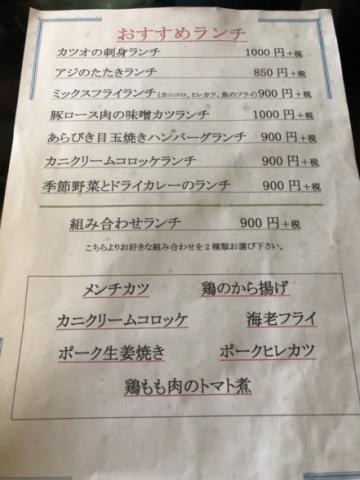 おすすめランチ
カツオの刺身ランチ 1000 円+税
アジのたたきランチ 850 円+税
ミックスフライランチ(カニコロ、ヒレカツ、魚のフライ) 900 円+税
豚ロース肉の味噌カツランチ 1000 円+税
あらびき目玉焼きハンバーグランチ 900 円+税
カニクリームコロッケランチ 900 円+税
季節野菜とドライカレーのランチ 900 円+税
組み合わせランチ 900 円+税
こちらよりお好きな組み合わせを2種類お選び下さい。
メンチカツ 鶏のから揚げ
カニクリームコロッケ 海老フライ
ポーク生姜焼き ポークヒレカツ
鶏もも肉のトマト煮